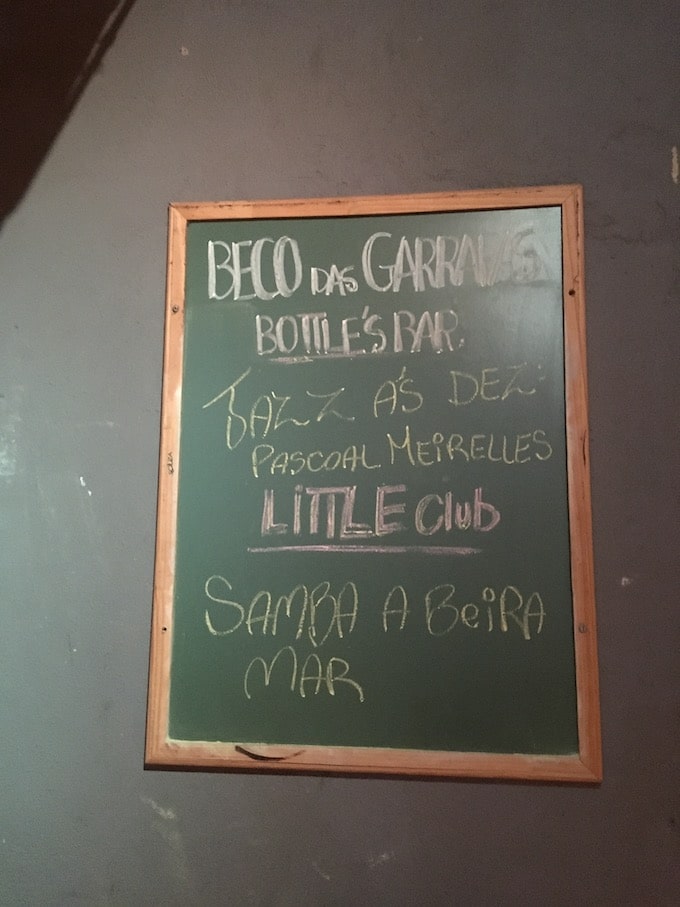 BECO DAS GARRAFAS
BOTTLE'S BAR
JAZZ A'S DEZ:
PASCOAL MEIRELLES
LITTLE Club
SAMBA A BEIRA
MAR